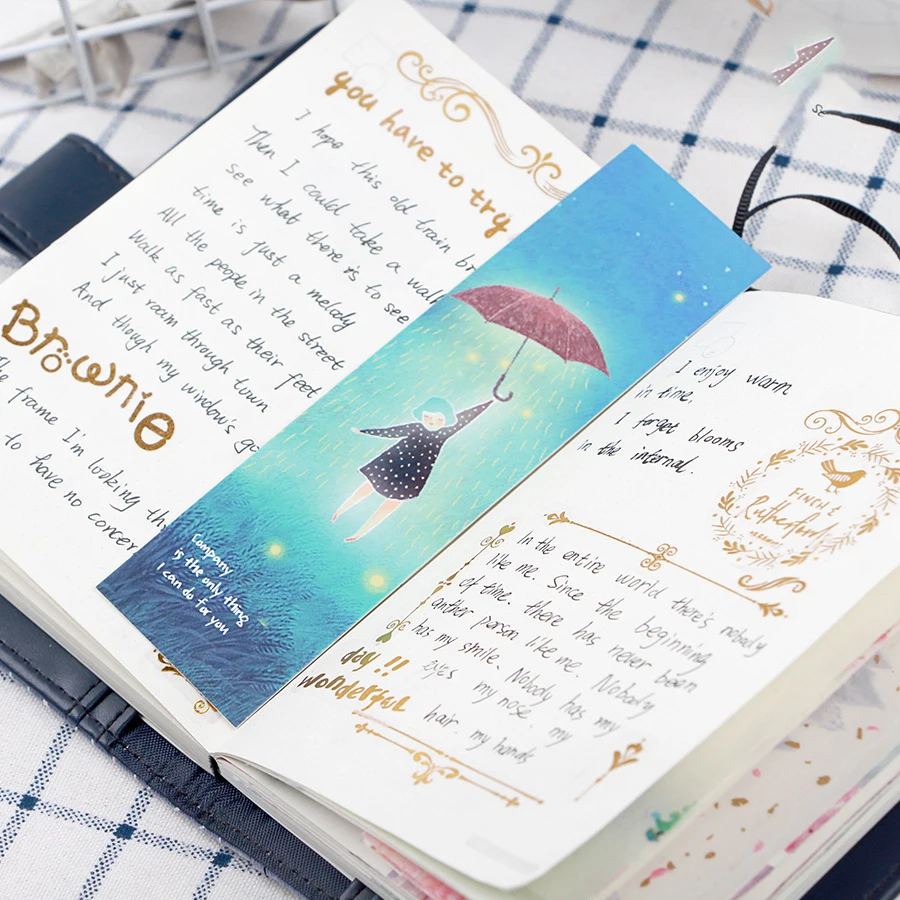 you have to try
I hope this old train br
Then I could take a walk
See what there is to see
time is just a melody
All the people in the street
walk as fast as their feet
I just roam through town
And though my window's go
Brownie
The frame I'm looking th
to have no concer
Company
is the only thing
I can do for you
I enjoy warm
in time,
I forget blooms
in the internal.
FINCH &
Rutherford
In the entire world there's nobody
like me. Since the beginning
of time. there has never been
anther person like me. Nobody
has my smile. Nobody has my
eyes my nose. my
hair. my hands
day!!
wonderful